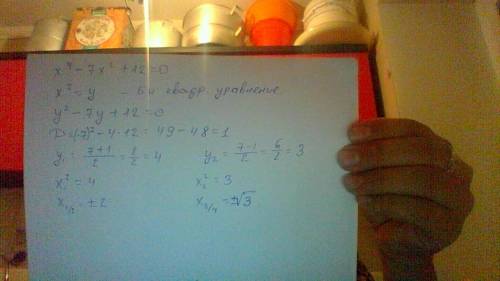 x⁴ - 7x² + 12 = 0
x² = y - квадр. уравнение
y² - 7y + 12 = 0
D = (-7)² - 4·12 = 49 - 48 = 1
y₁ = (7+1)/2 = 8/2 = 4 y₂ = (7-1)/2 = 6/2 = 3
x₁² = 4 x₂² = 3
x₁/₂ = ±2 x₃/₄ = ±√3